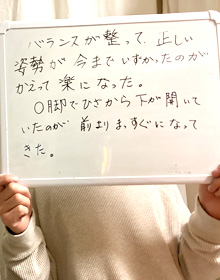 バランスが整って、正しい
姿勢が今までいずかったのが
かえって楽になった。
O脚でひざから下が開いて
いたのが前よりまっすぐになって
きた。